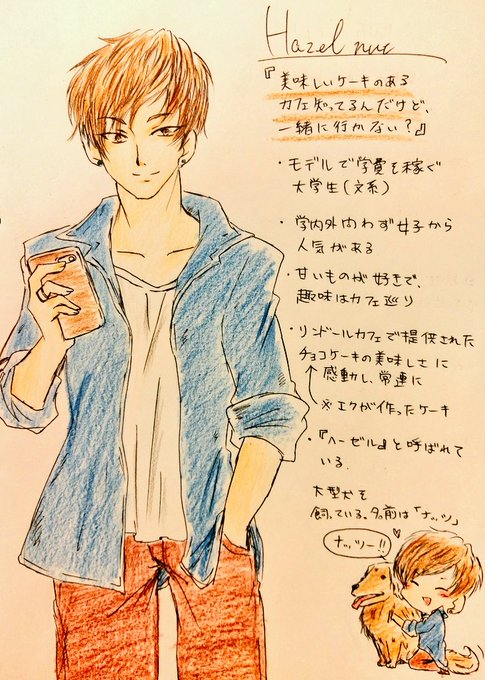 Hazel nut
『美味しいケーキのある
カフェ知ってるんだけど、
一緒に行かない？』
・モデルで学費を稼ぐ
大学生(文系)
・学内外問わず女子から
人気がある
・甘いものが好きで、
趣味はカフェ巡り
・リンドールカフェで提供された
チョコケーキの美味しさに
感動し、常連に
※エクが作ったケーキ
・『ヘーゼル』と呼ばれて
いる.
大型犬を
飼っている。名前は「ナッツ」
ナッツー!!